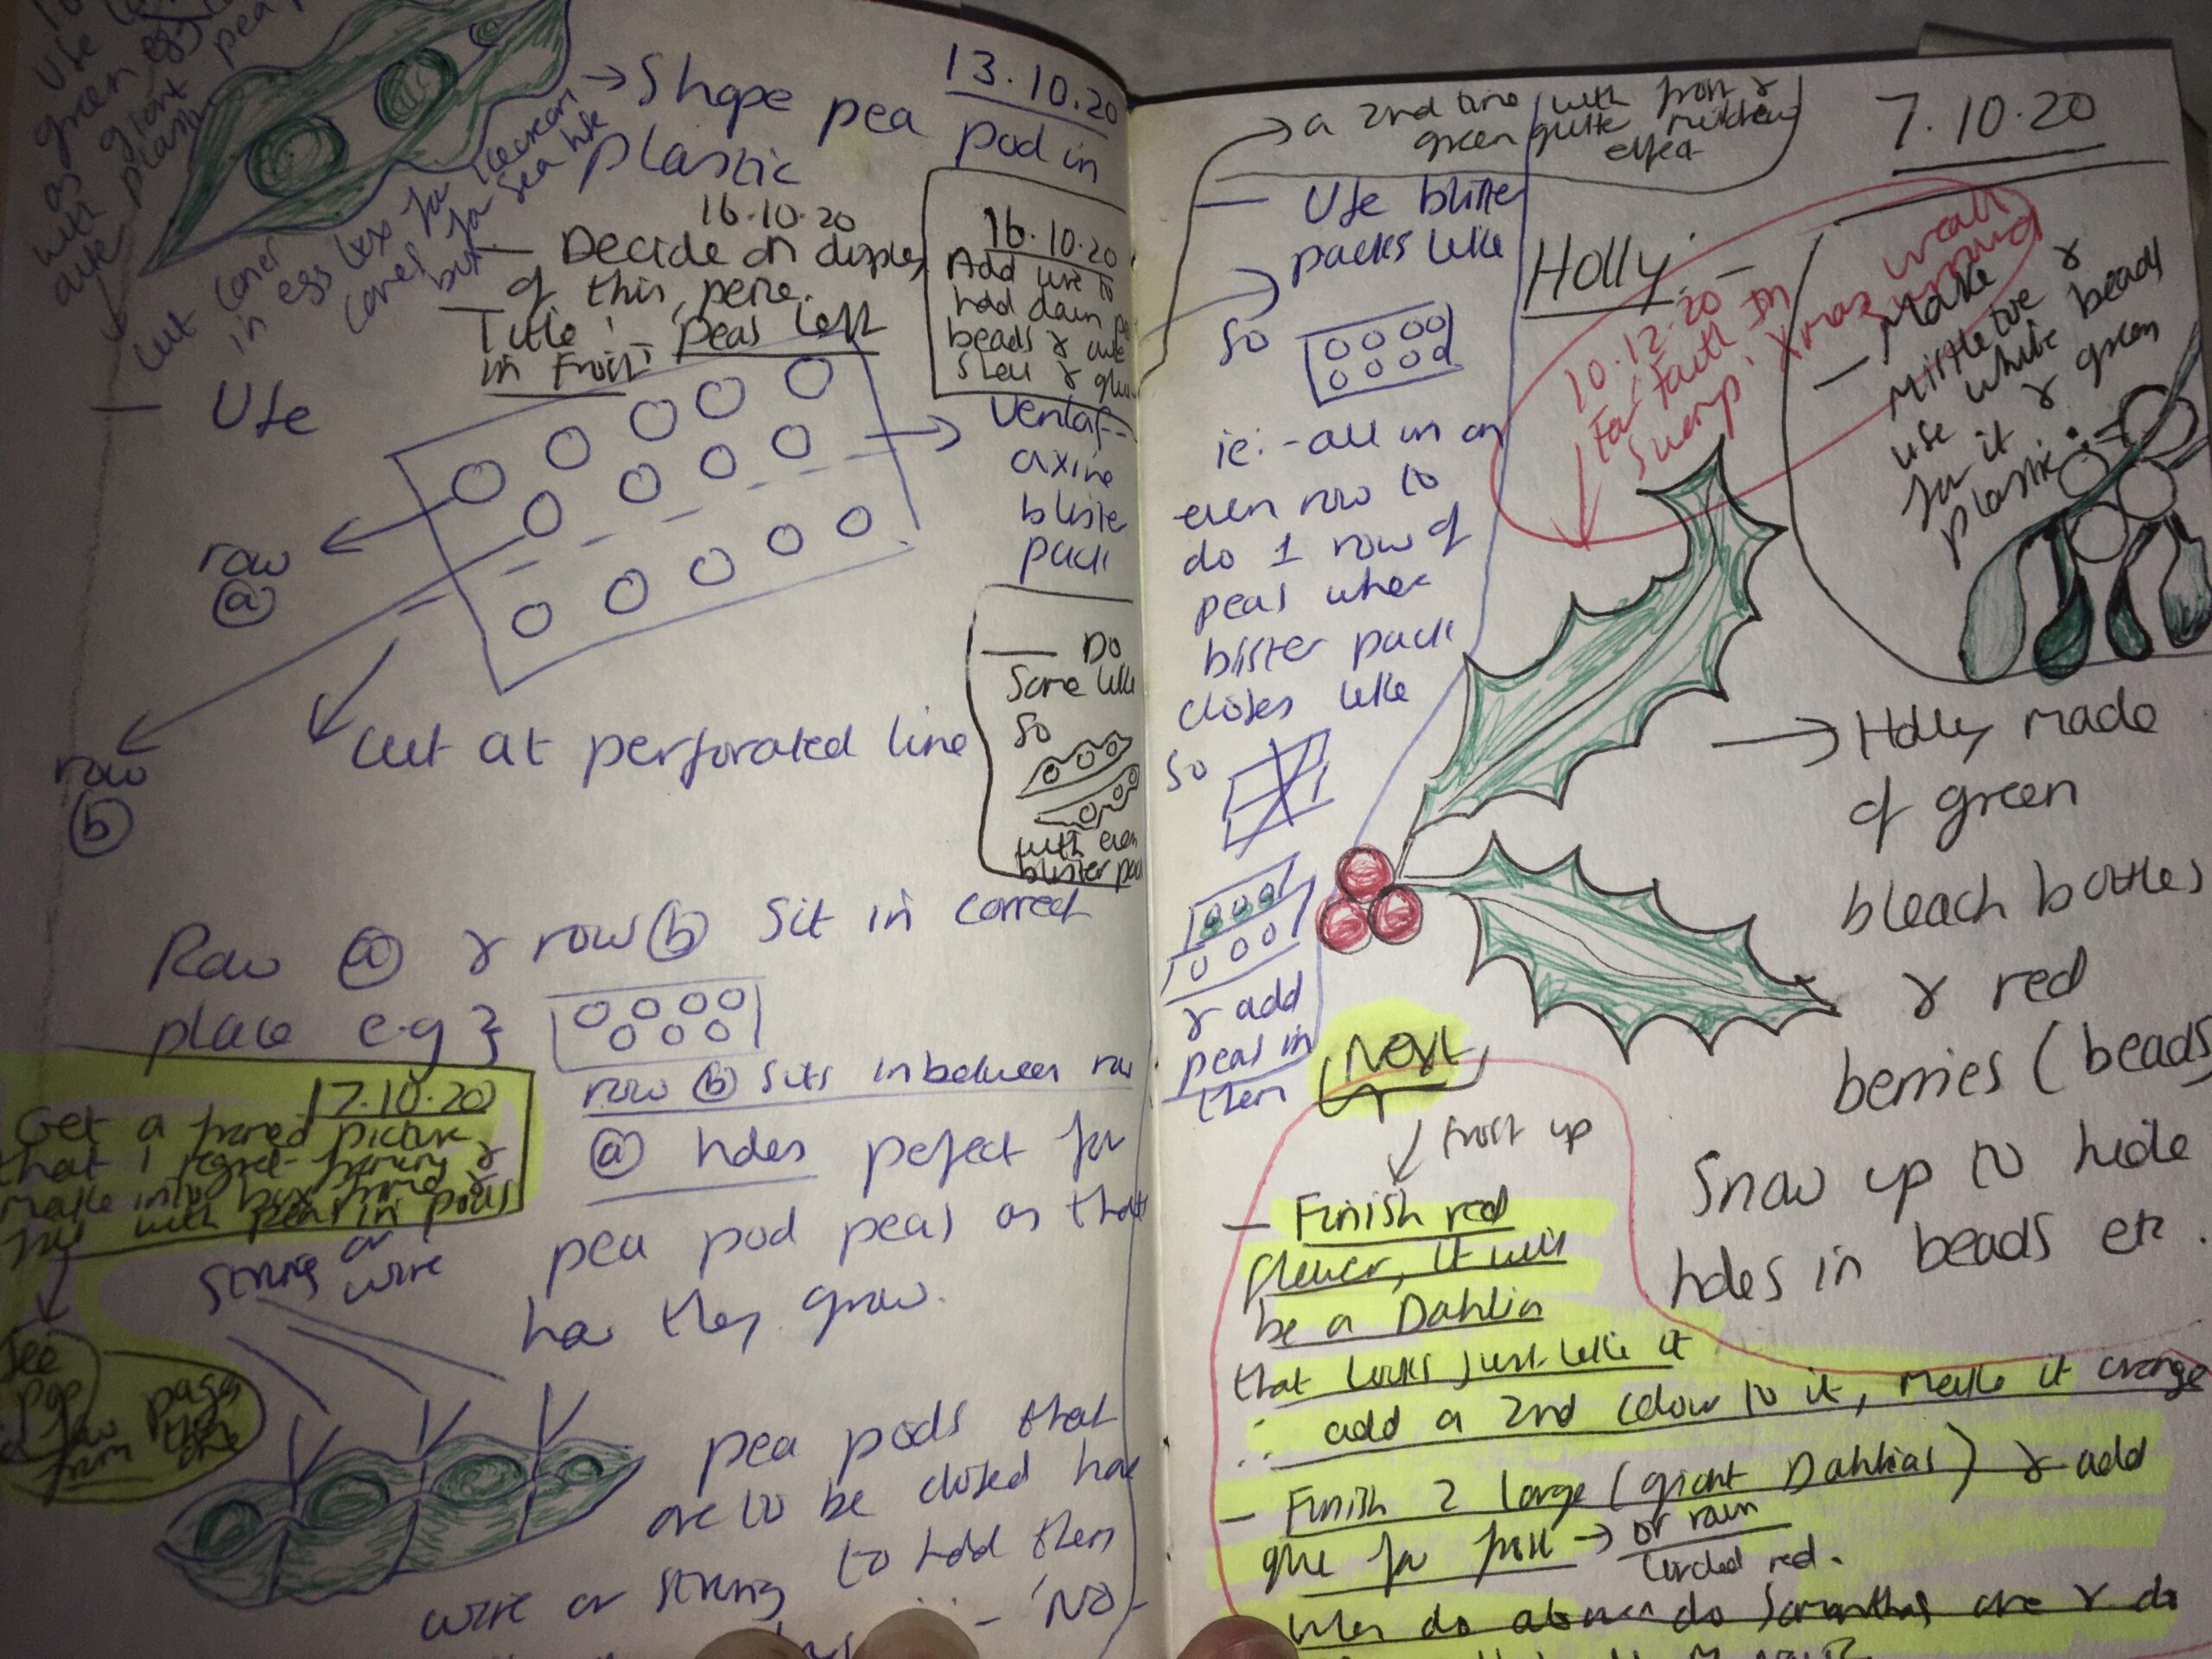 13.10.20
→ Shape pea pod in
plastic
16.10.20
— Decide on display
of this peice.
Title: Peas left
in Frost
16.10.20
Add wire to
hold down
beads &
& glue
cut corner
in egg box for icecream
cones for
but
— Use
Ventaf-
axine
blister
pack
row
(a)
row
(b)
cut at perforated line
— Do
Some like
so
with even
blister pack
Row (a) & row (b) sit in correct
place e.g }
row (b) sits inbetween row
(a) holes perfect for
pea pod peas as that
how they grow.
17.10.20
Get a framed picture
that I regret framing &
make into box frame &
with peas in pods
See
page
from this
one
string or
wire
pea pods that
are to be closed have
wire or string to hold them
- 'No-
→ a 2nd one with frost &
green mildew
effect
7.10.20
— Use blister
packs like
so
ie:- all in an
even row to
do 1 row of
peas when
blister pack
closes like
so
& add
peas in
then
Holly:-
10.12.20
For Faith In
Swamp' Xmas wreath
— Make
mistletoe &
use white beads
for it & green
plastic
→ Holly made
of green
bleach bottles
& red
berries (beads
Snow up to hide
holes in beads etc.
Next
↓ Frost up
— Finish red
flower, it will
be a Dahlia
that looks just like it
∴ add a 2nd colour to it, make it orange
— Finish 2 large (giant Dahlias) & add
glue for frost → or rain
Circled red.
When do above do Samanthas one & do